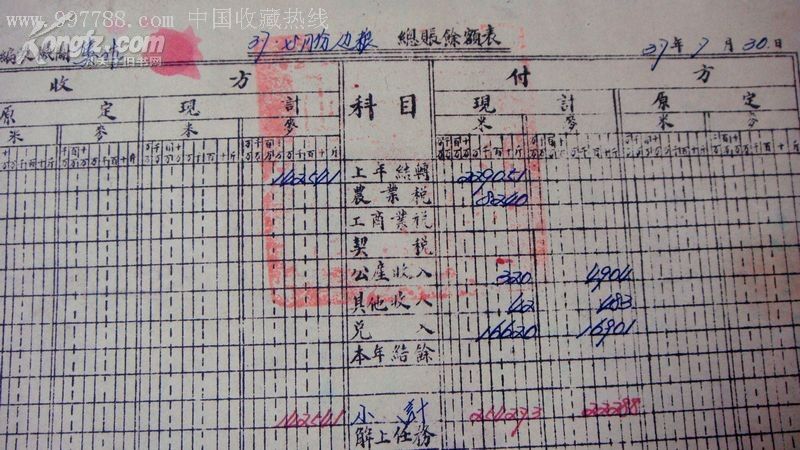 www.997788.com 中国收藏热线
kongfz.com
37.7月份边粮 總賬餘額表 37年7月30日
收方 科目 付方
原定 現計 現計 原定
米 麥 米 麥 米 麥 米 麥
142541 上年結轉 229051
農業稅 8240
工商業稅
契稅
公產收入 320 4904
其他收入 42 483
兑入 16620 16901
本年結餘
142541 小計 254273 22288
解上任務